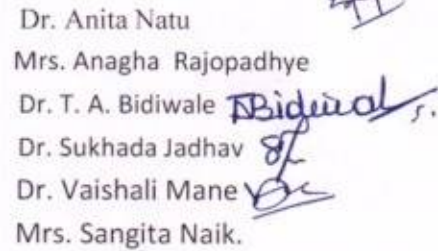 Dr. Anita Natu
Mrs. Anagha Rajopadhye
Dr. T. A. Bidiwale
Dr. Sukhada Jadhav
Dr. Vaishali Mane
Mrs. Sangita Naik.